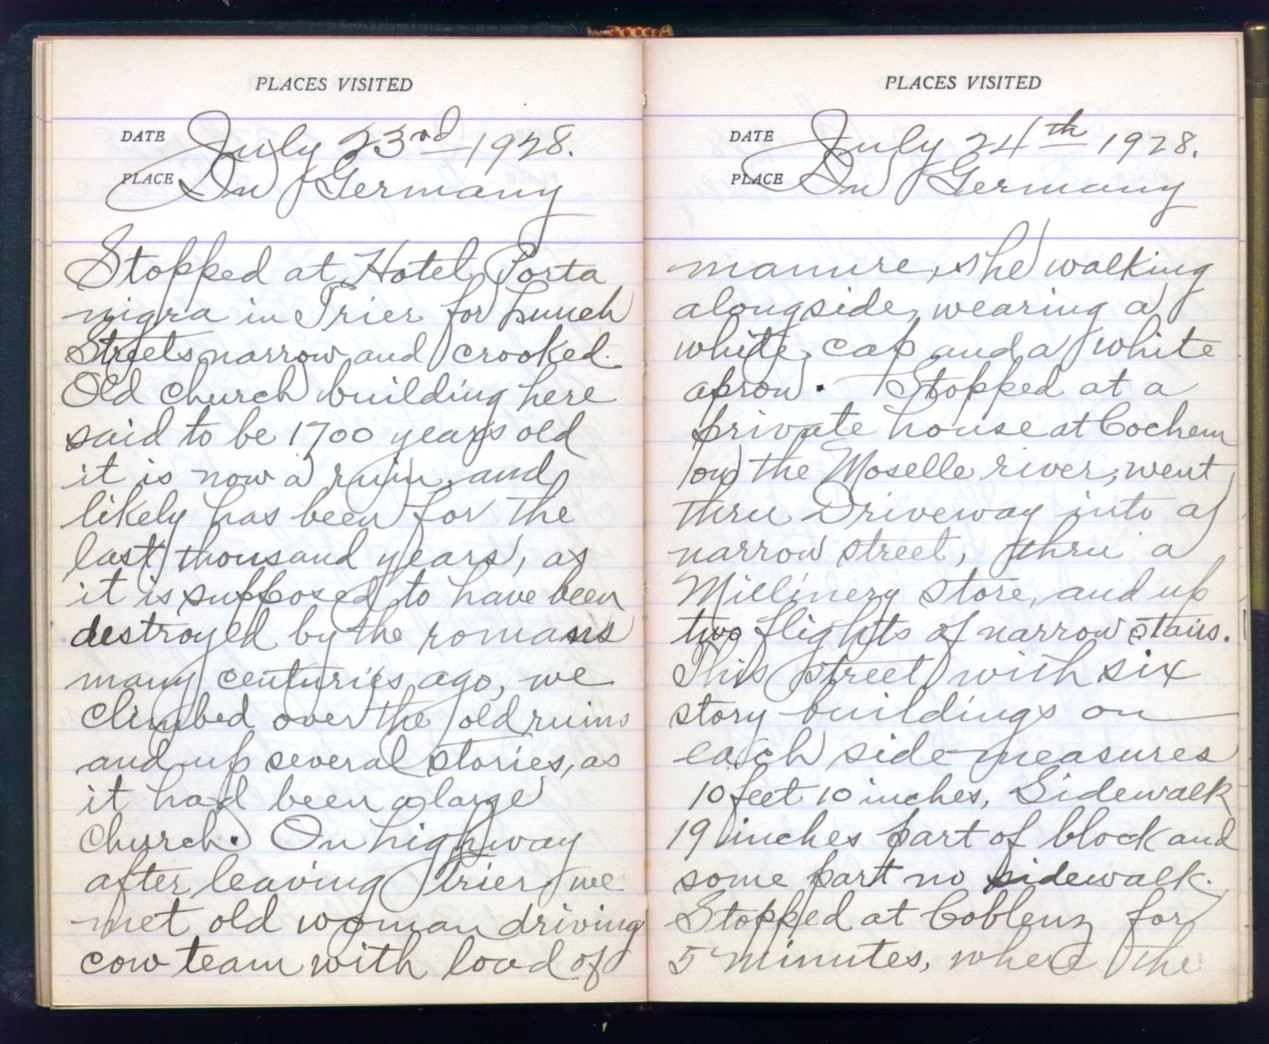 PLACES VISITED
DATE July 23rd 1928.
PLACE In Germany
Stopped at Hotel Porta
nigra in Trier for Lunch
Streets narrow and crooked.
Old church building here
said to be 1700 years old
it is now a ruin, and
likely has been for the
last thousand years, as
it is supposed to have been
destroyed by the romans
many centuries ago, we
climbed over the old ruins
and up several stories, as
it had been a large
church. On highway
after leaving Trier, we
met old woman driving
cow team with load of
PLACES VISITED
DATE July 24th 1928.
PLACE In Germany
manure, she walking
alongside, wearing a
white cap and a white
apron. Stopped at a
private house at Cochem
on the Moselle river, went
thru Driveway into a
narrow street, thru a
Millinery store, and up
two flights of narrow stairs.
This street with six
story buildings on
each side measures
10 feet 10 inches, Sidewalk
19 inches part of block and
some part no sidewalk.
Stopped at Coblenz for
5 minutes, where the